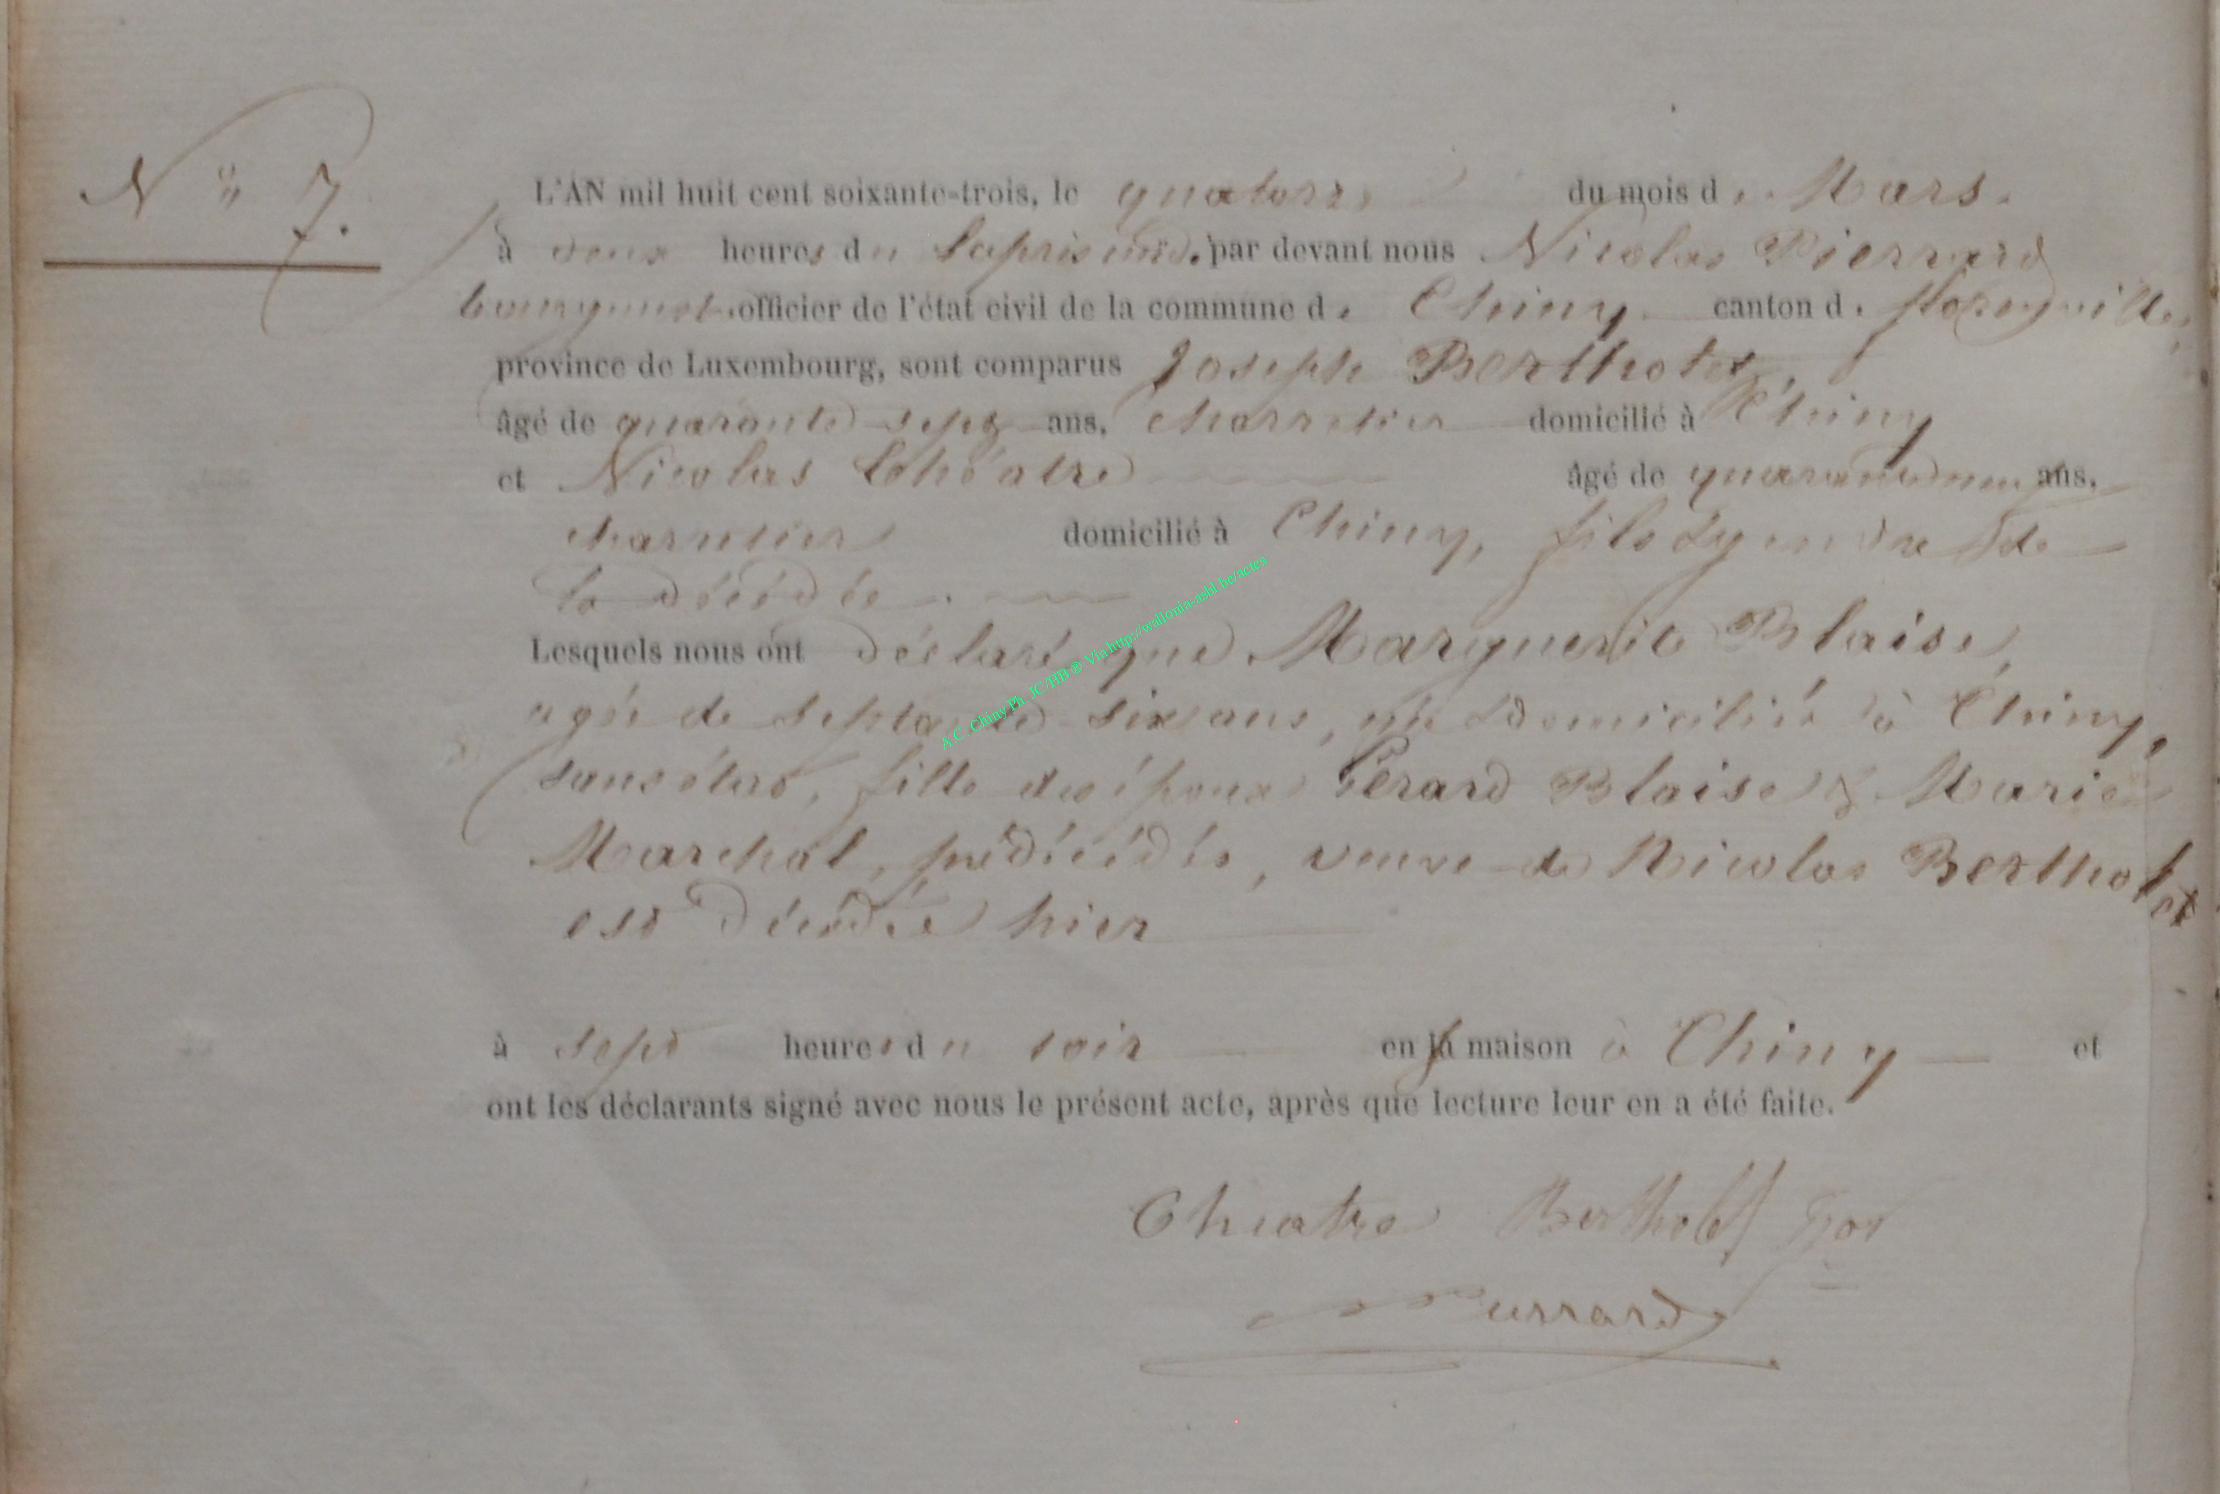 N° 7.
L'AN mil huit cent soixante-trois, le quatorze du mois de Mars.
à deux heures du l'après midi, par devant nous Nicolas Pierrard
bourgmestre officier de l'état civil de la commune de Chiny canton de florenville,
province de Luxembourg, sont comparus Joseph Bertholet,
âgé de quarante sept ans, charretier domicilié à Chiny
et Nicolas Théatre âgé de ans,
charretier domicilié à Chiny, fils & gendre de
la décédée.
Lesquels nous ont déclaré que Marguerite Blaise,
agée de septante six ans, née & domiciliée à Chiny,
sans état, fille des époux Gérard Blaise & Marie
Marchal, prédécédés, veuve de Nicolas Bertholet
est décédée hier
à sept heures du soir en sa maison à Chiny et
ont les déclarants signé avec nous le présent acte, après que lecture leur en a été faite.
Theatre Bertholet
Pierrard
A.C. Chiny Ph. JC-HB ® Via http://wallonia-asbl.be/actes